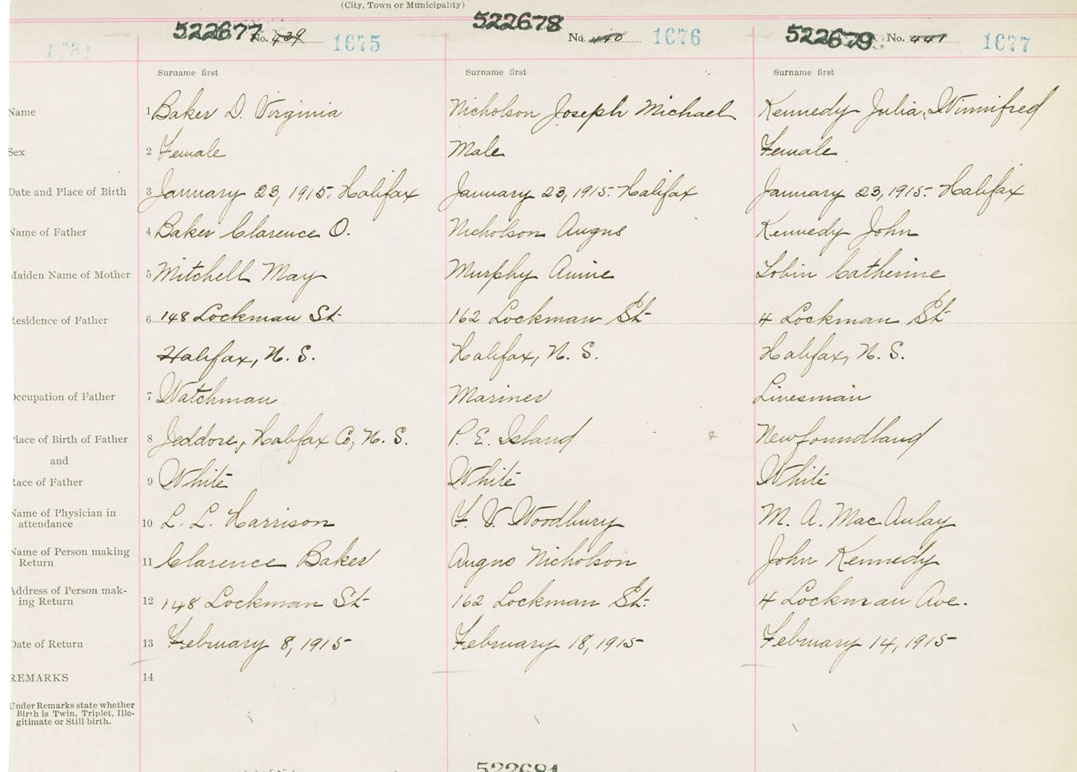 (City, Town or Municipality)
522677 No. 439 1675 522678 No. 440 1676 522679 No. 441 1677
Surname first Surname first Surname first
Name 1 Baker D. Virginia Nicholson Joseph Michael Kennedy Julia Winnifred
Sex 2 Female Male Female
Date and Place of Birth 3 January 23, 1915. Halifax January 23, 1915. Halifax January 23, 1915. Halifax
Name of Father 4 Baker Clarence O. Nicholson Angus Kennedy John
Maiden Name of Mother 5 Mitchell May Murphy Annie Tobin Catherine
Residence of Father 6 148 Lockman St. 162 Lockman St. 4 Lockman St.
Halifax, N. S. Halifax, N. S. Halifax, N. S.
Occupation of Father 7 Watchman Mariner Linesman
Place of Birth of Father 8 Jeddore, Halifax Co, N. S. P. E. Island Newfoundland
and
Race of Father 9 White White White
Name of Physician in
attendance 10 L. L. Harrison F. V. Woodbury M. A. MacAulay
Name of Person making
Return 11 Clarence Baker Angus Nicholson John Kennedy
Address of Person mak-
ing Return 12 148 Lockman St. 162 Lockman St. 4 Lockman Ave.
Date of Return 13 February 8, 1915 February 18, 1915 February 14, 1915
REMARKS 14
Under Remarks state whether
Birth is Twin, Triplet, Ille-
gitimate or Still birth.
522681